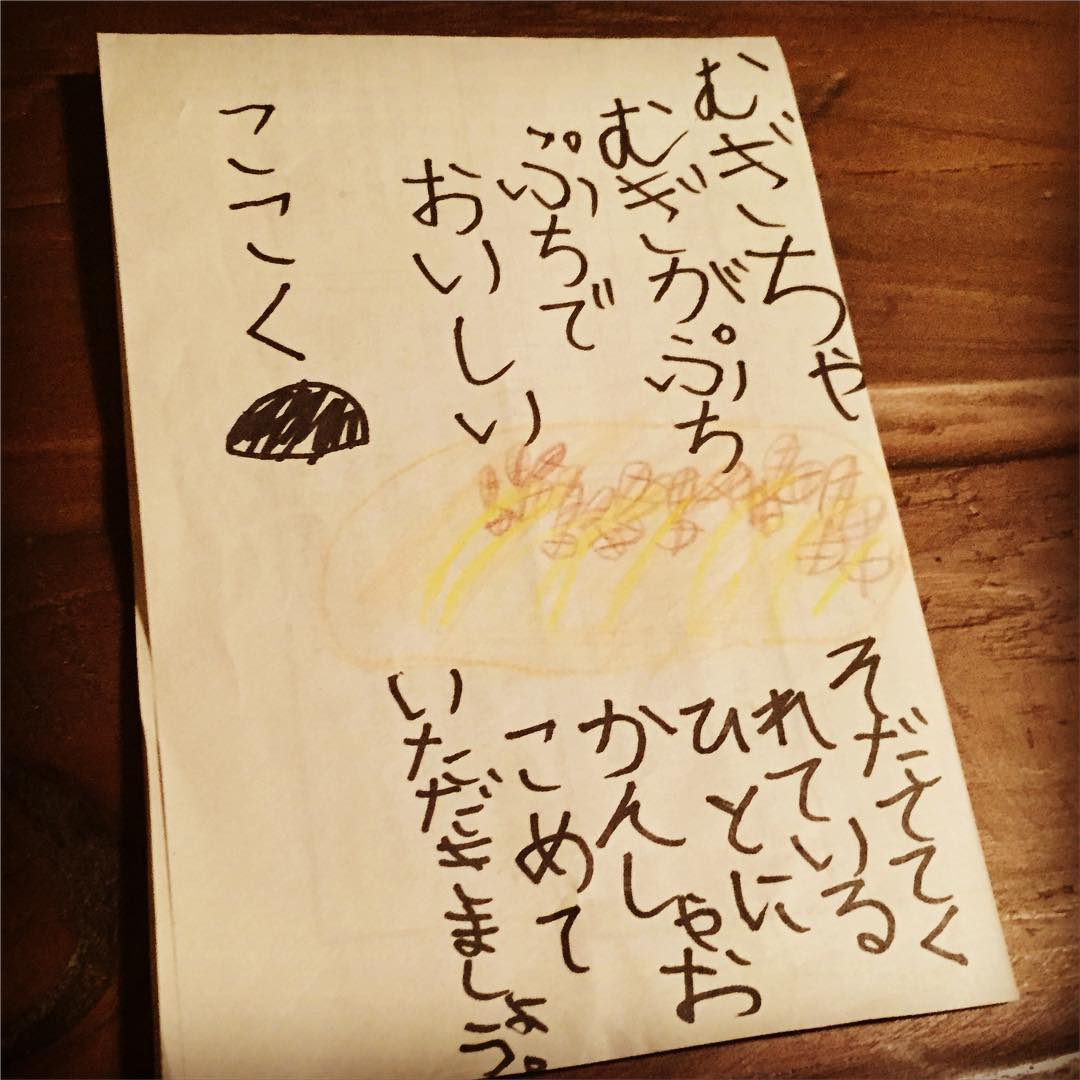 むぎこちゃ
むぎこがぷち
ぷちで
おいしい
そだててく
れている
ひとに
かんしゃお
こめて
いただきましょう。
ここく